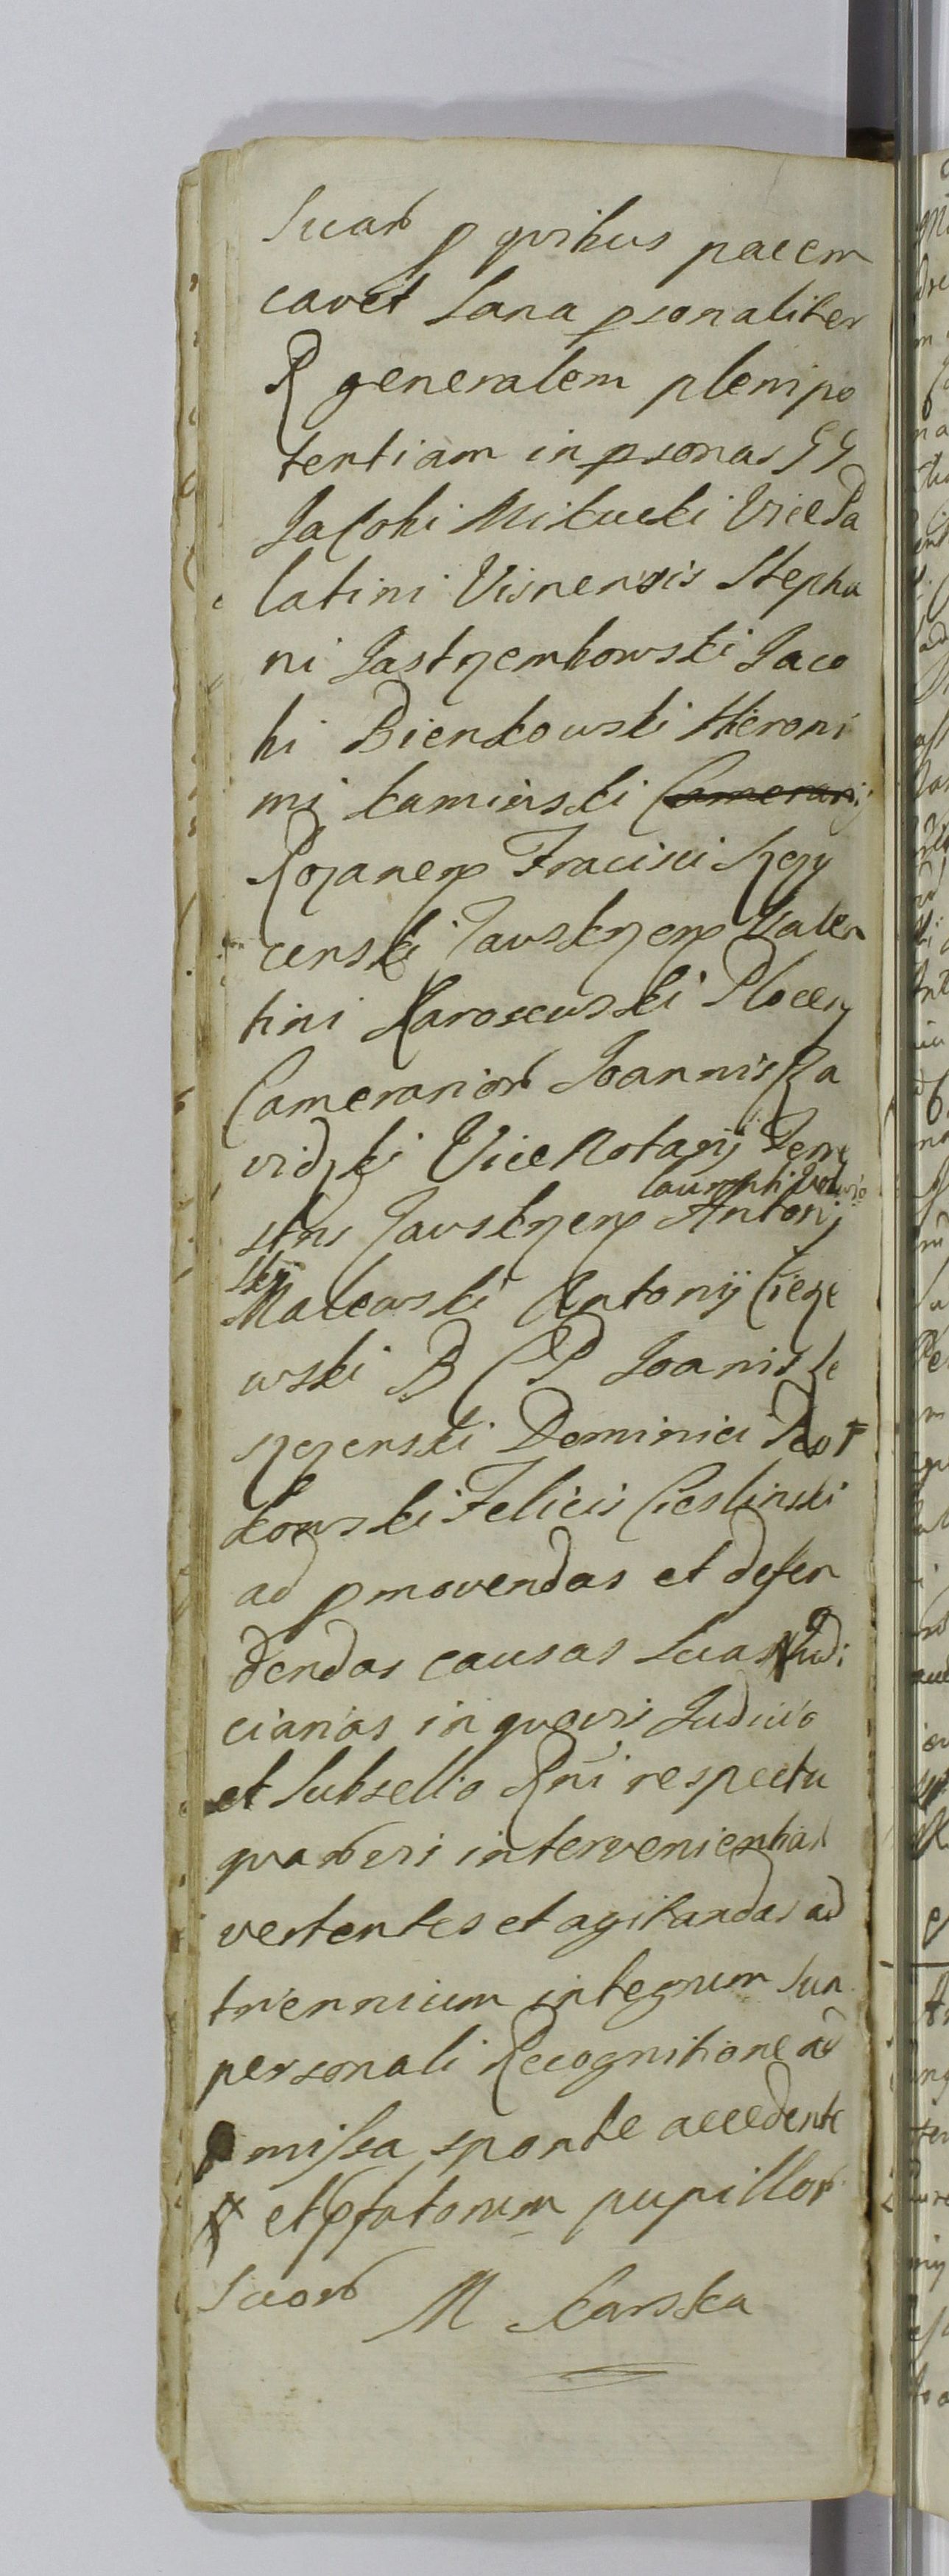 Suar p quibus pacem
cavet Sana psonaliter
R generalem plenipo
tentiam in psonas GG
Jacobi Mikucki Vice Pa
latini Visnensis Stepha
ni Jastrzembowski Jaco
bi Bienkowski Hieroni
mi Kaminski Camerarij
Rozanen Fracisci
censki Zavskrzen Valen
tini Karosewski Plocen
Camerarior Joannis Za
vidzki Vice Notarij Terre
stris Zavskrzen Antonij
Malewski Antonij Cieze
wski B C P Joanis Le
Dominici Piot
kowski Felicis Cieslinski
ad pmovendas et defen
dendas causas suas Judi
ciarias in quovis Judicio
et Subsellio Rni respectu
quarvis intervenientias
vertentes et agitandas ad
triennium integrum sua
personali Recognitione ad
missa sponte accedente
et pfatorum pupillor
Suor M Karska